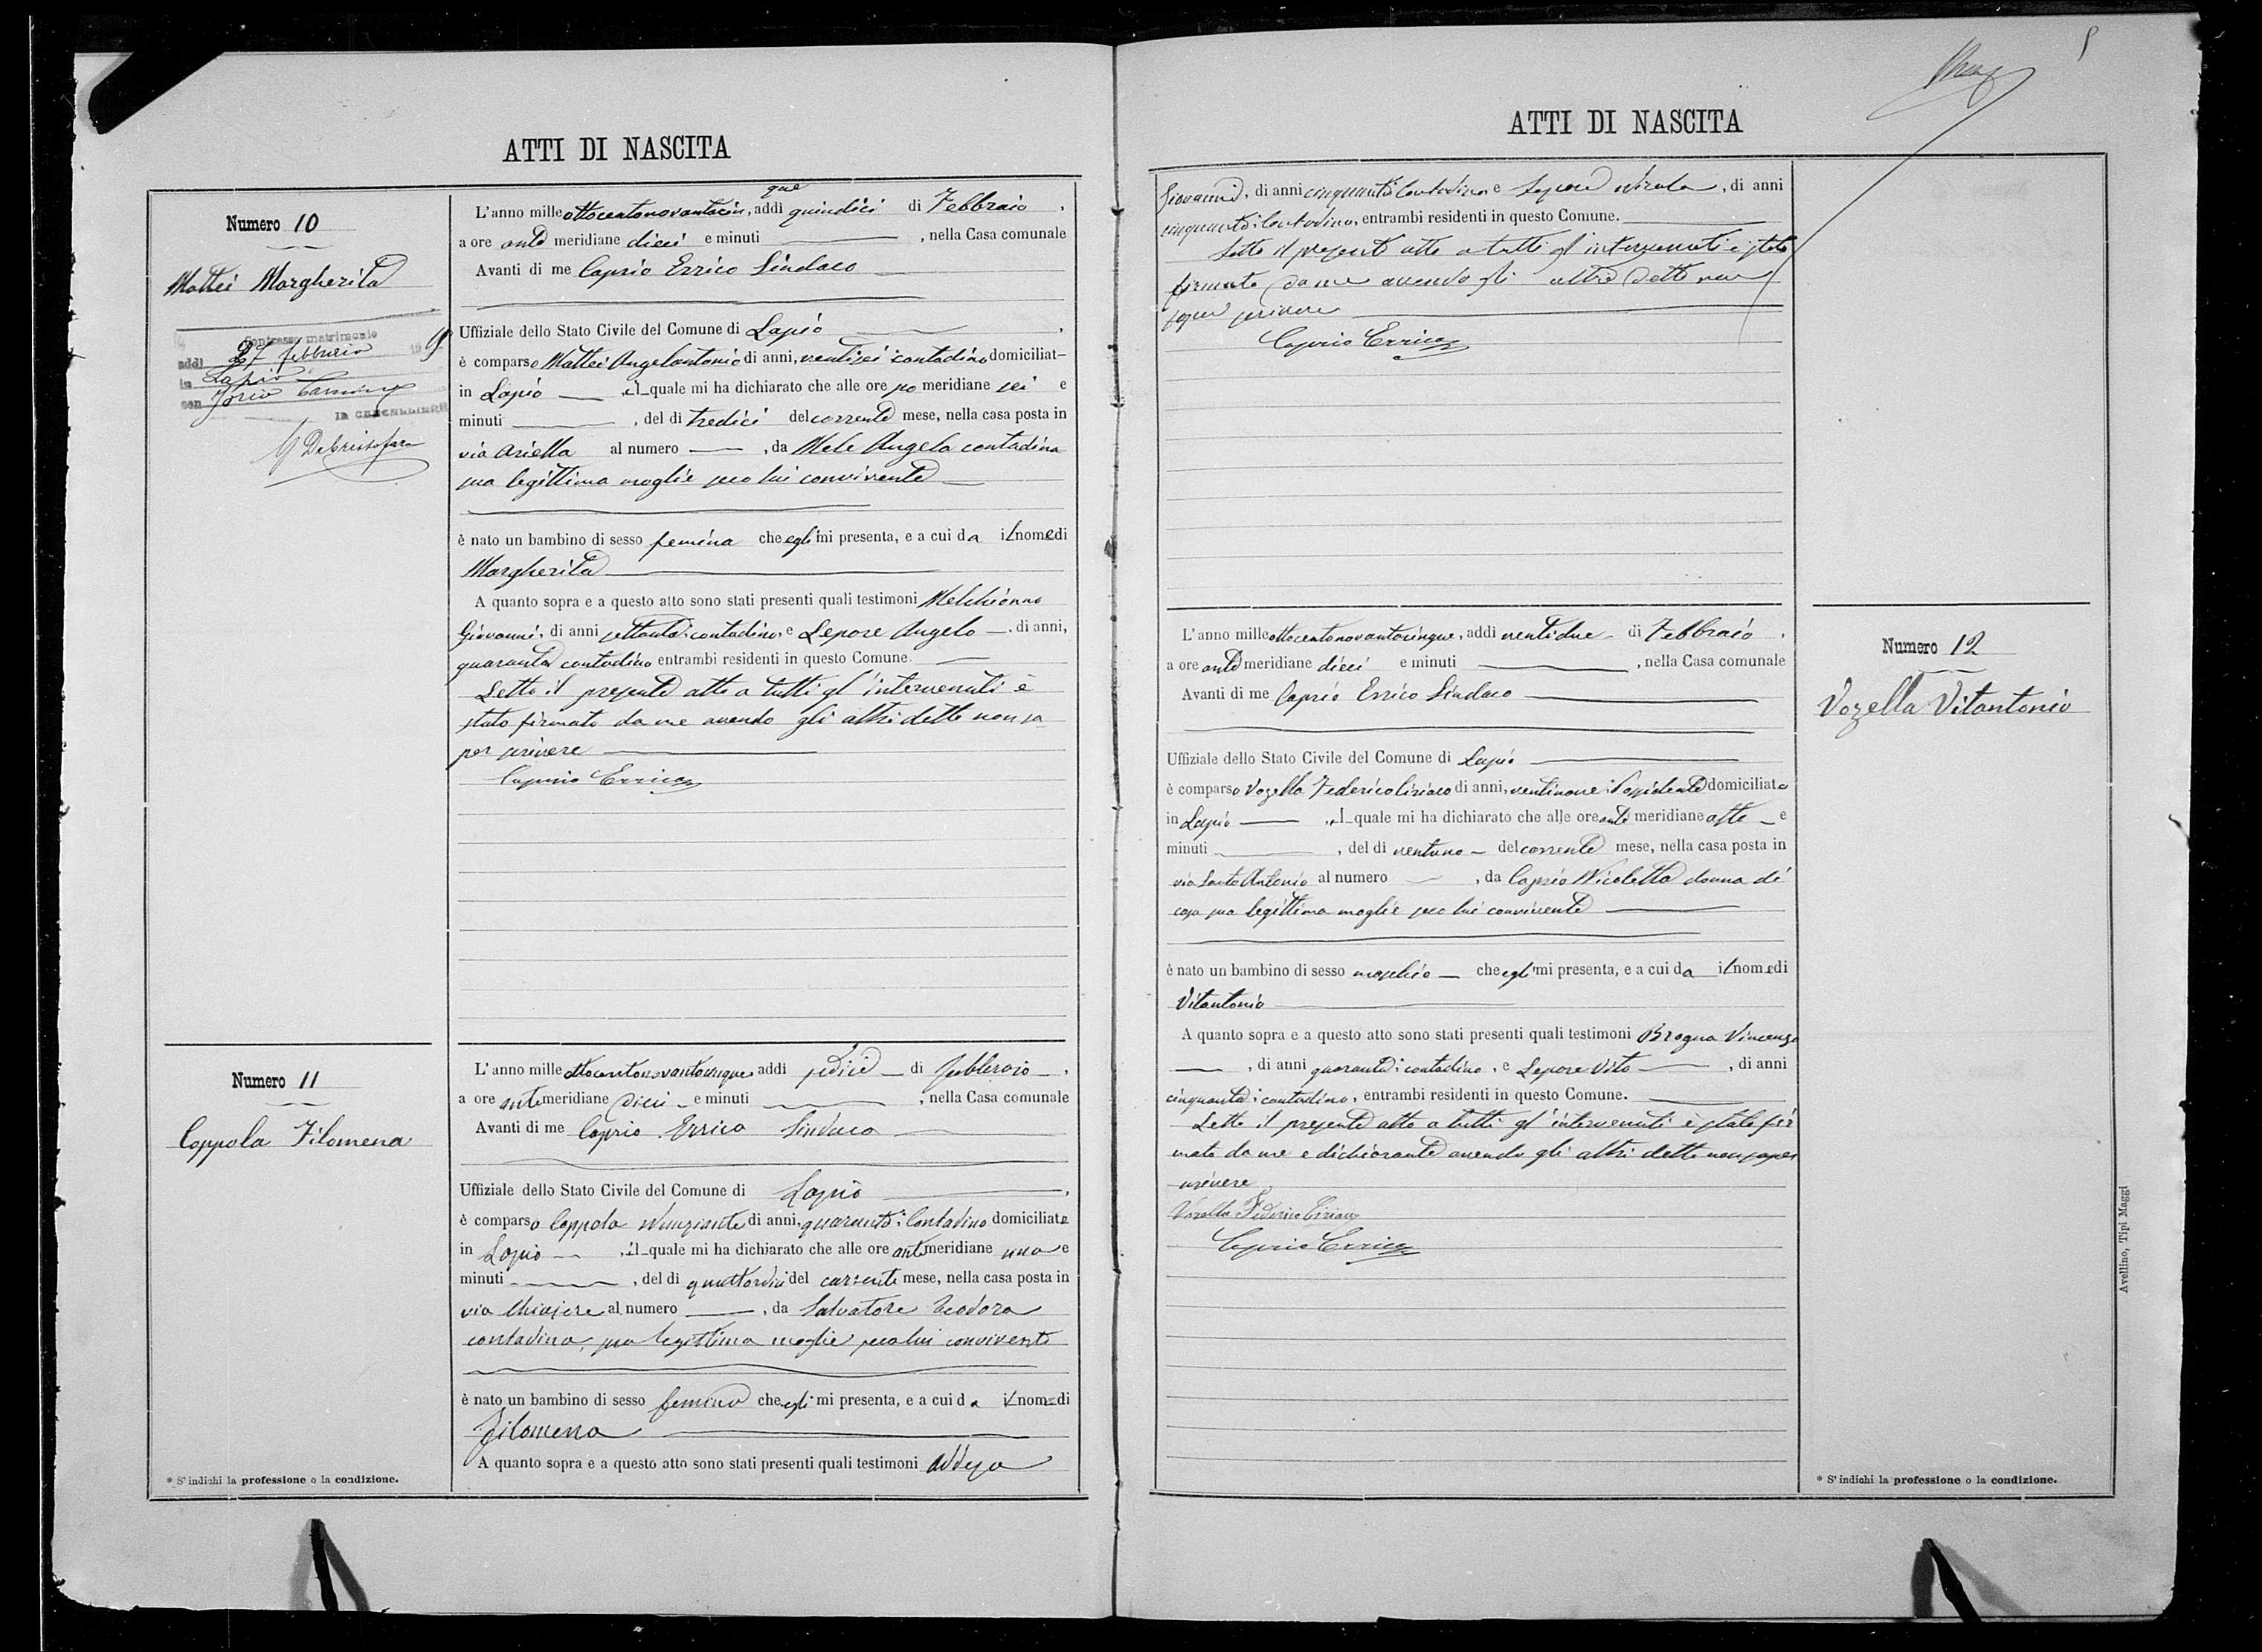 ATTI DI NASCITA
Numero 10
Mattei Margherita
Contrasse matrimonio
addì 27 febbraio 19
in Lapio
con Iorio
IL CANCELLIERE
que
L'anno mille ottocentonovantacin, addì quindici di Febbraio,
a ore ante meridiane dieci e minuti , nella Casa comunale
Avanti di me Caprio Errico Sindaco
Uffiziale dello Stato Civile del Comune di Lapio ,
è comparso Mattei Angelantonio di anni, ventisei contadino domiciliat
in Lapio , il quale mi ha dichiarato che alle ore po meridiane sei e
minuti , del dì tredici del corrente mese, nella casa posta in
via Ariella al numero , da Mele Angela contadina
sua legittima moglie seco lui convivente
è nato un bambino di sesso femina che egli mi presenta, e a cui da il nome di
Margherita
A quanto sopra e a questo atto sono stati presenti quali testimoni Melchionno
Giovanni, di anni settanta, contadino, e Lepore Angelo , di anni,
quaranta contadino entrambi residenti in questo Comune.
Letto il presente atto a tutti gl'intervenuti è
stato firmato da me avendo gli altri detto non sa
per scrivere
Caprio Errico
Numero 11
Coppola Filomena
L'anno mille ottocentonovantacinque addì sedici di febbraio ,
a ore antemeridiane dieci e minuti , nella Casa comunale
Avanti di me Caprio Errico Sindaco
Uffiziale dello Stato Civile del Comune di Lapio ,
è comparso Coppola Nunziante di anni, quaranta, Contadino domiciliato
in Lapio , il quale mi ha dichiarato che alle ore antemeridiane una e
minuti , del dì quattordici del corrente mese, nella casa posta in
via al numero , da Salvatore Teodora
contadina, sua legittima moglie seco lui convivente
è nato un bambino di sesso femina che egli mi presenta, e a cui da il nome di
Filomena
A quanto sopra e a questo atto sono stati presenti quali testimoni Addesa
* S'indichi la professione o la condizione.
ATTI DI NASCITA
Giovanni, di anni cinquanta Contadino e Lepore Nicola, di anni
cinquanta, Contadino, entrambi residenti in questo Comune.
Letto il presente atto a tutti gl'intervenuti è stato
firmato da me avendo gli altri detto non
saper scrivere
Caprio Errico
L'anno mille ottocentonovantacinque, addì ventidue di Febbraio ,
a ore ante meridiane dieci e minuti , nella Casa comunale
Avanti di me Caprio Errico Sindaco
Uffiziale dello Stato Civile del Comune di Lapio
è comparso Vozella Federico Ciriaco di anni, ventinove, Possidente domiciliato
in Lapio , il quale mi ha dichiarato che alle ore ante meridiane otto e
minuti , del dì ventuno del corrente mese, nella casa posta in
via Santo Antonio al numero , da Caprio Nicoletta donna di
casa sua legittima moglie seco lui convivente
è nato un bambino di sesso maschio che egli mi presenta, e a cui da il nome di
Vitantonio
A quanto sopra e a questo atto sono stati presenti quali testimoni Brogna Vincenzo
, di anni quaranta, contadino, e Lepore Vito , di anni
cinquanta, contadino, entrambi residenti in questo Comune.
Letto il presente atto a tutti gl'intervenuti è stato fir
mato da me e dichiarante avendo gli altri detto non saper
scrivere
Vozella Federico Ciriaco
Caprio Errico
Numero 12
Vozella Vitantonio
* S'indichi la professione o la condizione.
Avellino, Tipi Maggi